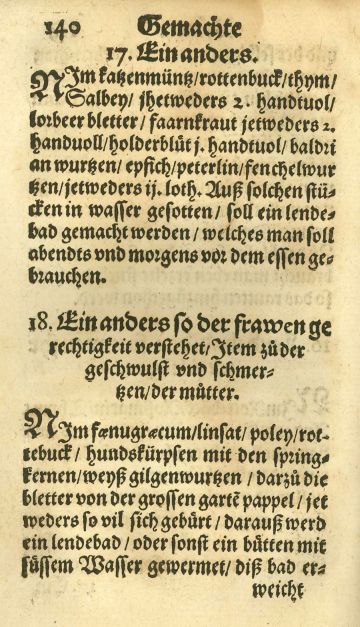 140 Gemachte
17. Ein anders.
NJm katzenmüntz/rottenbuck/thym/
Salbey/ jhetweders 2. handtuol/
lorbeer bletter/ faarnkraut jetweders 2.
handuoll/holderblüt j. handtuol/ baldri
an wurtzen/ epfich/peterlin/fenchelwur
tzen/jetweders ij. loth. Auß solchen stü-
cken in wasser gesotten/ soll ein lende-
bad gemacht werden/ welches man soll
abendts vnd morgens vor dem essen ge-
brauchen.
18. Ein anders so der frawen ge
rechtigkeit verstehet/Item zů der
geschwulst vnd schmer-
tzen/der můtter.
NJm fœnugræcum/linsat/ poley/rot-
tebuck/ hundskürpsen mit den spring-
kernen/weyß gilgenwurtzen/ darzů die
bletter von der grossen gartē pappel/ jet
weders so vil sich gebürt/ darauß werd
ein lendebad/ oder sonst ein bütten mit
süssem Wasser gewermet/ diß bad er-
weicht